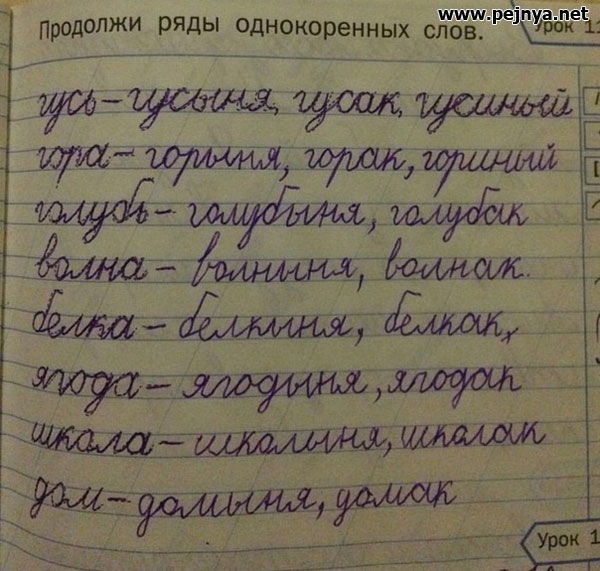 www.pejnya.net
Продолжи ряды однокоренных слов.
Урок 11
гусь – гусыня, гусак, гусиный
гора – горыня, горак, гориный
голубь – голубыня, голубак
волна – волныня, волнак.
белка – белкыня, белкак,
ягода – ягодыня, ягодак
школа – школыня, школак
дом – домыня, домак
Урок 1